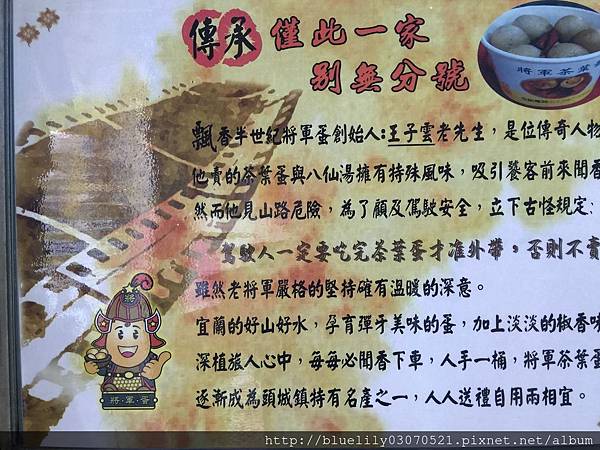 傳承 僅此一家
別無分號
將軍茶葉
飄香半世紀將軍蛋創始人:王子雲老先生，是位傳奇人物
他賣的茶葉蛋與八仙湯擁有特殊風味，吸引饕客前來聞香
然而他見山路危險，為了顧及駕駛安全，立下古怪規定:
駕駛人一定要吃完茶葉蛋才准外帶，否則不賣
雖然老將軍嚴格的堅持確有溫暖的深意。
宜蘭的好山好水，孕育彈牙美味的蛋，加上淡淡的椒香味
深植旅人心中，每每必聞香下車，人手一桶，將軍茶葉蛋
逐漸成為頭城鎮特有名產之一，人人送禮自用兩相宜。
將
將·軍·蛋
http://bluelily03070521.pixnet.net/album